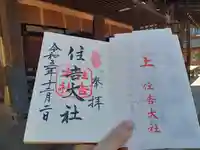 奉拝
住吉大社
令和三年十二月二日
上
住吉大社